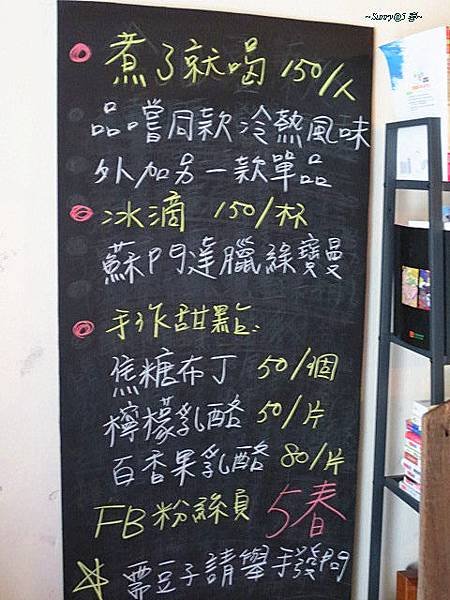 ~Sunny@5春~
煮了就喝 150/人
品嚐同款冷熱風味
外加另一款單品
冰滴 150/杯
蘇門達臘綠寶曼
手作甜點:
焦糖布丁 50/個
檸檬乳酪 50/片
百香果乳酪 80/片
FB粉絲頁 5春
需豆子請舉手發問